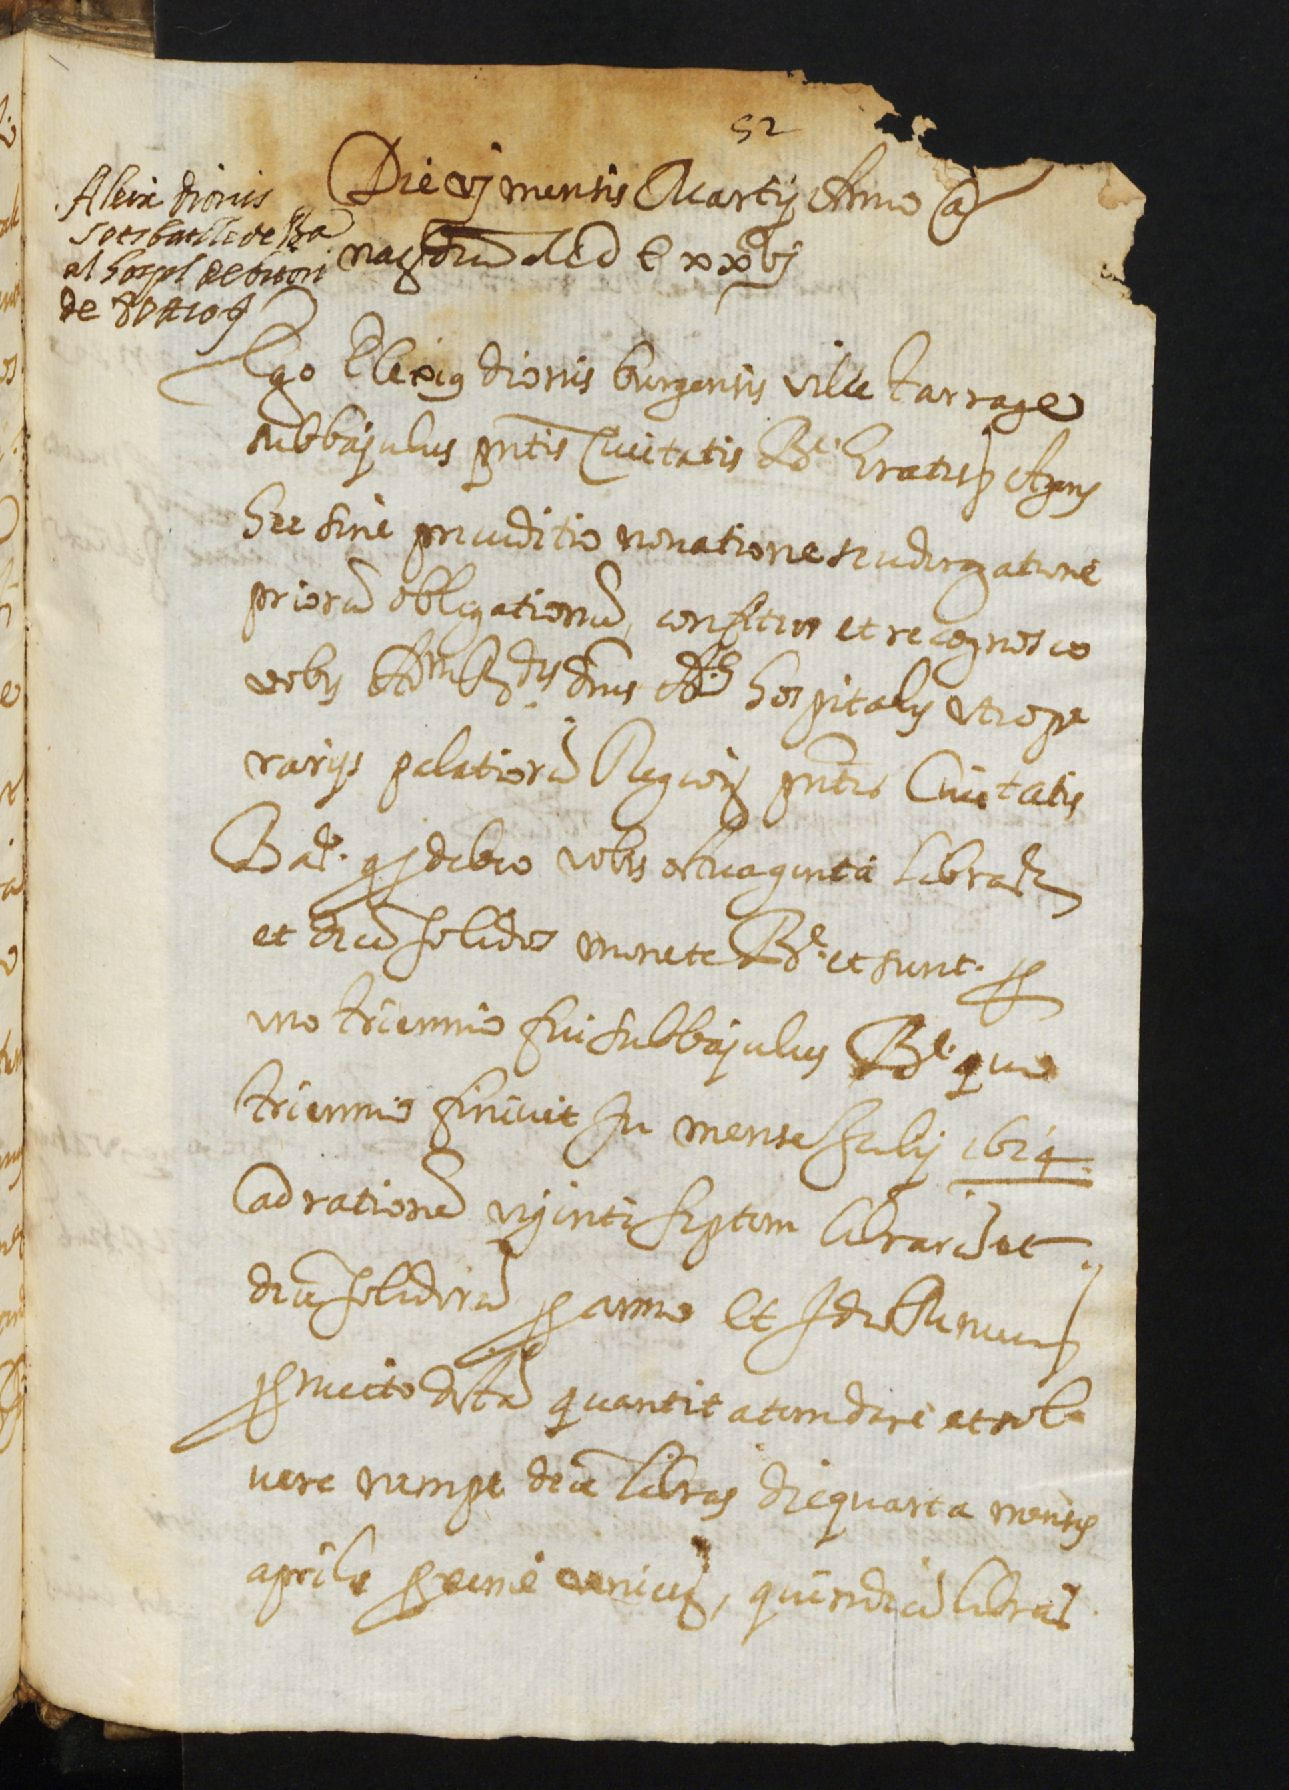 52
Aleix dionis
sotsbatlle de Ba
al hospl debitori
de 80 ₶ 10 ȷ
Die vj mensis Martij Anno a
natte dni MDCxxvj
Ego Alexig dionis burgensis ville tarrage
subbajulus pntis Civitatis Be. Gratis Agens
hec sine preiuditio novatione seu derogatione
priorũ obligationũ, confiteor et recognosco
vobis Admỹ Rdis dnis Hospitalis et ope
rarijs palatiorũ Regiorũ pntis Civitatis
Bae. q debeo vobis octuaginta libras
et decẽ solidos monete Be. et sunt. p
uno triennio fui subbajulus Be. quo
triennio finivit In mense Julij 1624
ad rationẽ viginti septem librarũ et
decẽ solidorũ p anno Et Ideo
promitto dctã quantitatem dare et sol
vere nempe decẽ libras die quarta mensis
aprilis p.e venieñ, quindecĩ libras